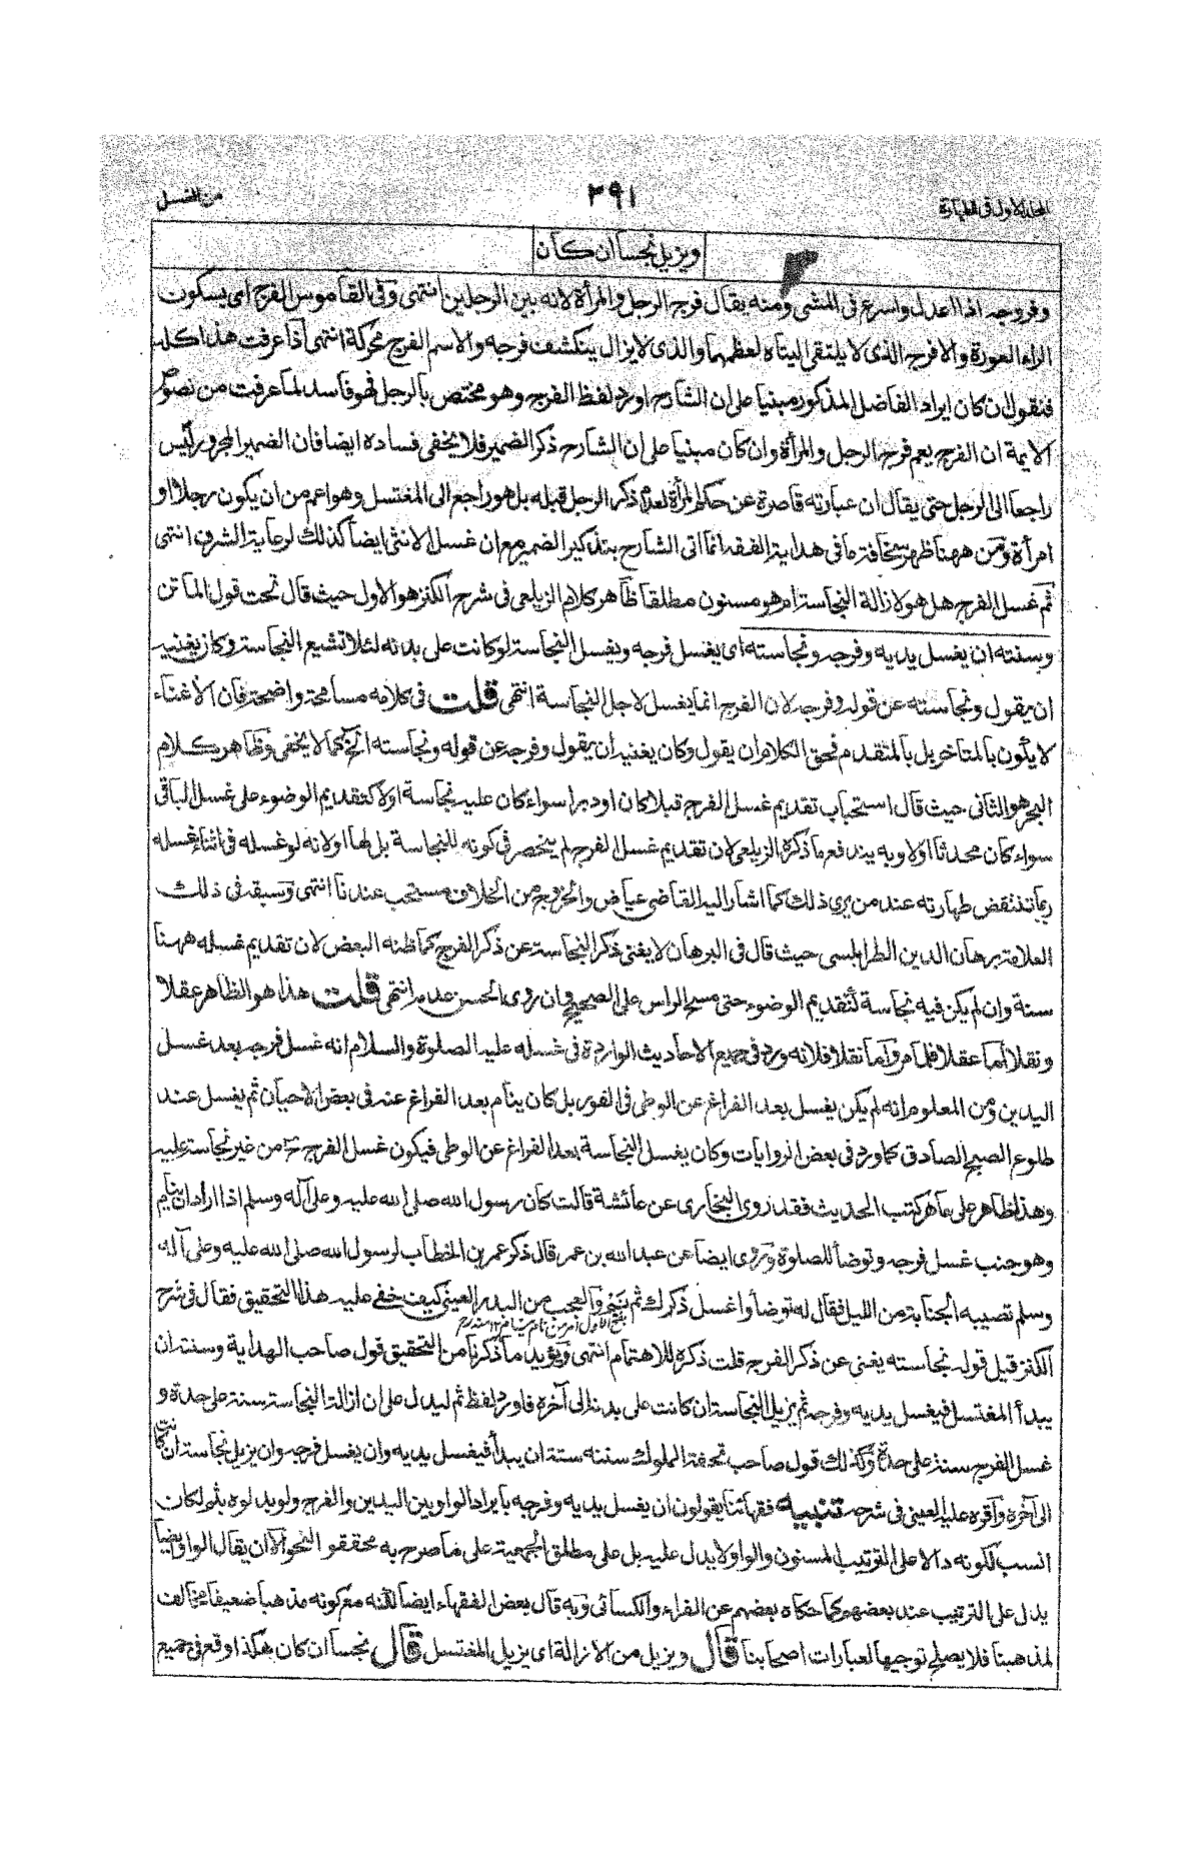 المجلد الاول فى الطهارة
٢٩١
من الغسل
ويزيل نجسا ان كان
وفروجه اذا اعدل واسرع فى المشى ومنه يقال فرج الرجل والمرأة لانه بين الرجلين انتهى وفى القاموس الفرج اى بسكون
الراء العورة والافرج الذى لا يلتقى اليتاه لعظمهما والذى لا يزال ينكشف فرجه والاسم الفرج محركة انتهى اذا عرفت هذا كله
فنقول ان كان ايراد الفاضل المذكور مبنيا على ان الشارح اورد لفظ الفرج وهو مختص بالرجل فهو فاسد لما عرفت من نصوص
الايمة ان الفرج يعم فرج الرجل والمرأة وان كان مبنيا على ان الشارح ذكر الضمير فلا يخفى فساده ايضا فان الضمير المجرور ليس
راجعا الى الرجل حتى يقال ان عبارته قاصرة عن حكم المرأة لعدم ذكر الرجل قبله بل هو راجع الى المغتسل وهو اعم من ان يكون رجلا او
امرأة ومن ههنا ظهر سخافة ما فى هداية الفقه انما اتى الشارح بتذكير الضمير مع ان غسل الانثى ايضا كذلك لرعاية الشرف انتهى
ثم غسل الفرج هل هو لازالة النجاسة ام هو مسنون مطلقا ظاهر كلام الزيلعى فى شرح الكنز هو الاول حيث قال تحت قول الماتن
وسنته ان يغسل يديه وفرجه ونجاسته اى يغسل فرجه ويغسل النجاسة لو كانت على بدنه لئلا تشيع النجاسة وكان يغنيه
ان يقول ونجاسته عن قوله وفرجه لان الفرج انما يغسل لاجل النجاسة انتهى قلت فى كلامه مسامحة واضحة فان الاغناء
لا يكون بالمتاخر بل بالمتقدم فحق الكلام ان يقول وكان يغنيه ان يقول وفرجه عن قوله ونجاسته الخ كما لا يخفى وظاهر كلام
البحر هو الثانى حيث قال استحباب تقديم غسل الفرج قبلا كان او دبرا سواء كان عليه نجاسة اولا كتقديم الوضوء على غسل الباقى
سواء كان محدثا اولا وبه يندفع ما ذكره الزيلعى لان تقديم غسل الفرج لم ينحصر فى كونه للنجاسة بل لها او لانه لو غسله فى اثناء غسله
ربما تنتقض طهارته عند من يرى ذلك كما اشار اليه القاضى عياض والخروج من الخلاف مستحب عندنا انتهى وسبقه فى ذلك
العلامة برهان الدين الطرابلسى حيث قال فى البرهان لا يغنى ذكر النجاسة عن ذكر الفرج كما ظنه البعض لان تقديم غسله ههنا
سنة وان لم يكن فيه نجاسة كتقديم الوضوء حتى مسح الراس على الصحيح وان روى الحسن عدمه انتهى قلت هذا هو الظاهر عقلا
ونقلا اما عقلا فلما مر واما نقلا فلانه ورد فى جميع الاحاديث الواردة فى غسله عليه الصلوة والسلام انه غسل فرجه بعد غسل
اليدين ومن المعلوم انه لم يكن يغسل بعد الفراغ عن الوطى فى الفور بل كان ينام بعد الفراغ عنه فى بعض الاحيان ثم يغسل عند
طلوع الصبح الصادق كما ورد فى بعض الروايات وكان يغسل النجاسة بعد الفراغ عن الوطى فيكون غسل الفرج ح من غير نجاسة عليه
وهذا ظاهر على ماهر كتب الحديث فقد روى البخارى عن عائشة قالت كان رسول الله صلى الله عليه وعلى آله وسلم اذا اراد ان ينام
وهو جنب غسل فرجه وتوضأ للصلوة وروى ايضا عن عبد الله بن عمر قال ذكر عمر بن الخطاب لرسول الله صلى الله عليه وعلى آله
وسلم تصيبه الجنابة من الليل فقال له توضأ واغسل ذكرك ثم نم والعجب من البدر العينى كيف خفى عليه هذا التحقيق فقال فى شرح
الكنز قيل قوله نجاسته يغنى عن ذكر الفرج قلت ذكره للاهتمام انتهى ويؤيد ما ذكرنا من التحقيق قول صاحب الهداية وسنته ان
يبدأ المغتسل فيغسل يديه وفرجه ثم يزيل النجاسة ان كانت على بدنه الى آخره فاورد لفظ ثم ليدل على ان ازالة النجاسة سنة على حدة و
غسل الفرج سنة على حدة وكذلك قول صاحب تحفة الملوك سننه ستة ان يبدأ فيغسل يديه وان يغسل فرجه وان يزيل نجاسة ان كانت
الى آخره واقره عليه العينى فى شرحه تنبيه فقهائنا يقولون ان يغسل يديه وفرجه بايراد الواو بين اليدين والفرج ولو بدلوه بثم لكان
انسب لكونه دالا على الترتيب المسنون والواو لا يدل عليه بل على مطلق الجمعية على ما صرح به محققو النحو الا ان يقال الواو ايضا
يدل على الترتيب عند بعضهم كما حكاه بعضهم عن الفراء والكسائى وبه قال بعض الفقهاء ايضا لكنه مع كونه مذهبا ضعيفا مخالف
لمذهبنا فلا يصلح توجيها لعبارات اصحابنا قال ويزيل من الازالة اى يزيل المغتسل قال نجسا ان كان هكذا وقع فى جميع